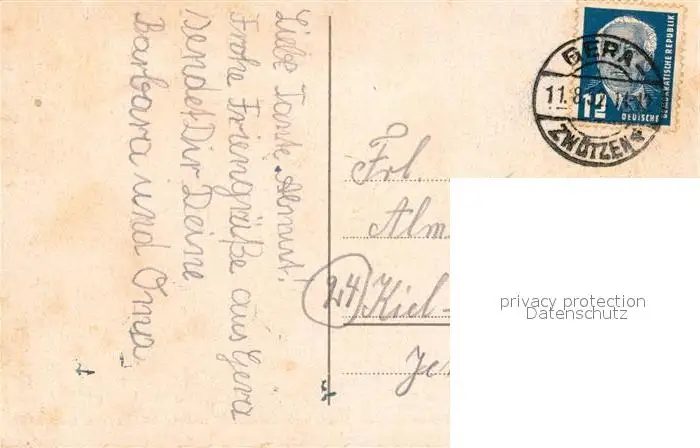 Liebe Tante Almut!
Frohe Friengrüße aus Gera
sendet Dir Deine
Barbara und Oma
GERA-
11.8.
ZWÖTZEN
12
DEUTSCHE
DEMOKRATISCHE REPUBLIK
Frl.
Alm
24 Kiel-
privacy protection
Datenschutz